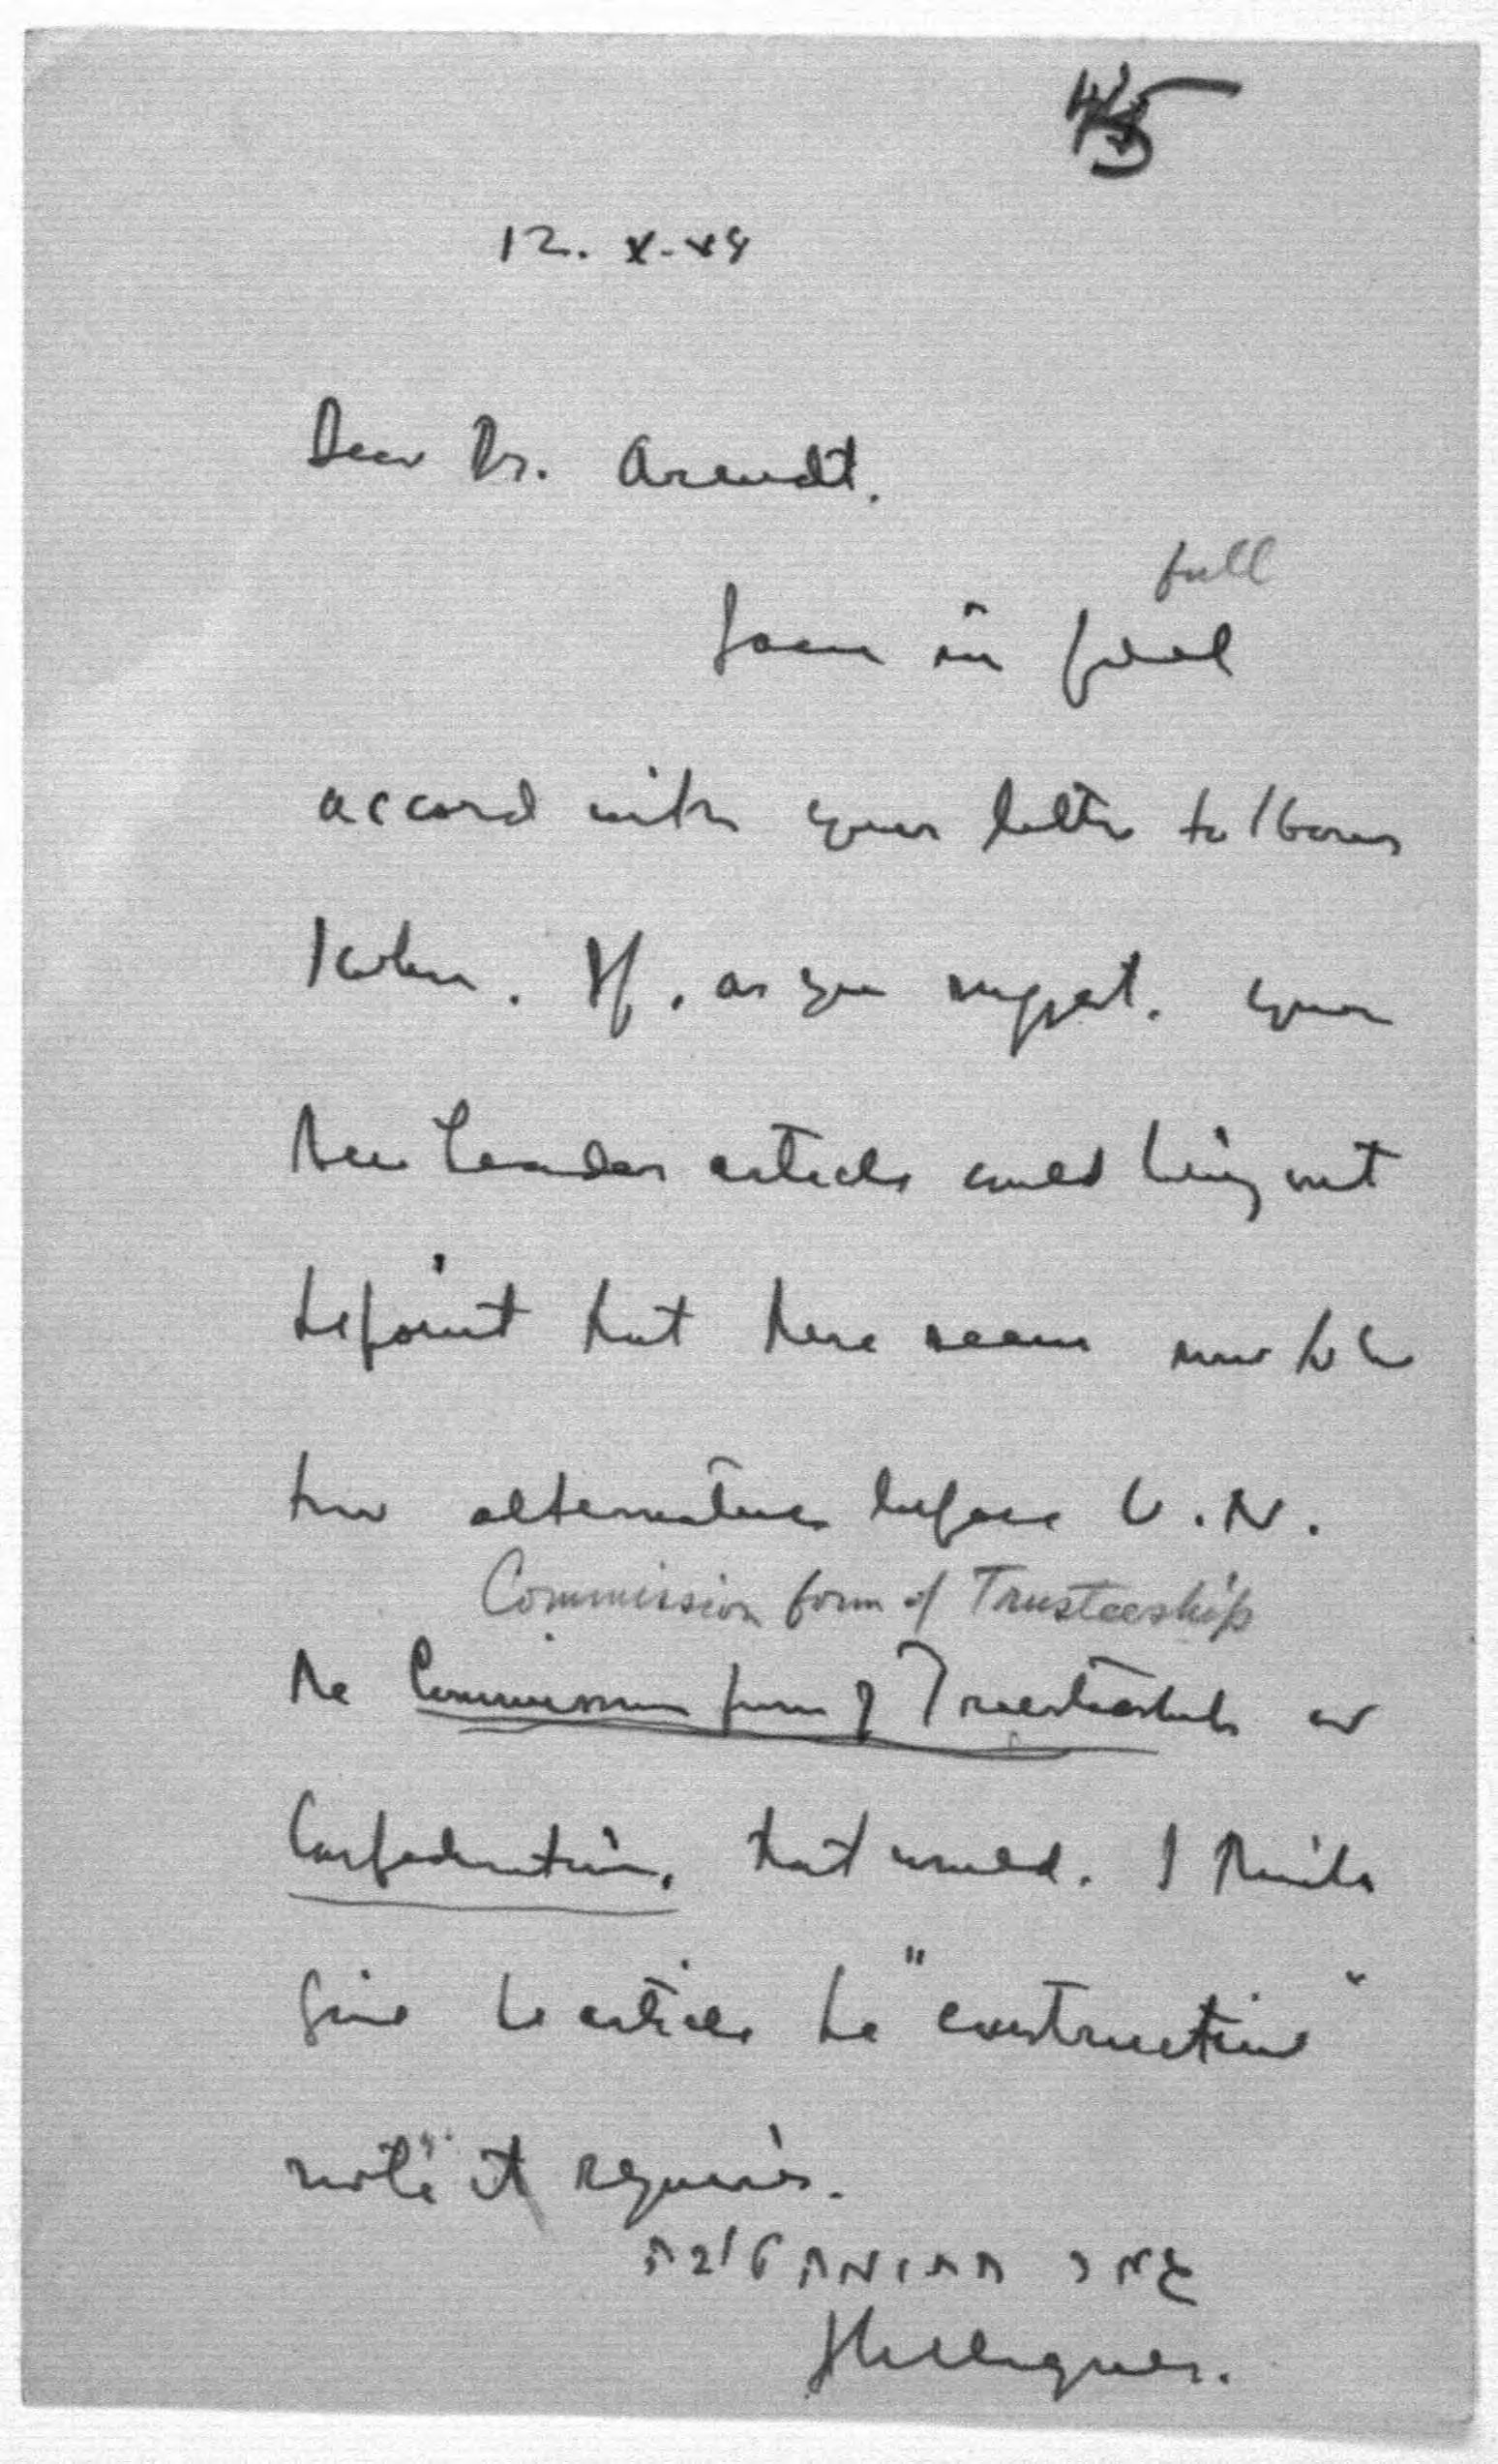 45
12. X. 48
Dear Dr. Arendt.
full
I am in full
accord with your letter to Hans
Kohn. If, as you suggest, your
New Leader article could bring out
the point that there seems now to be
two alternatives before U.N.
Commission form of Trusteeship
the Commission form of Trusteeship or
Confederation, that would, I think
give the article the "constructive"
note" it requires.
גמר חתימה טובה